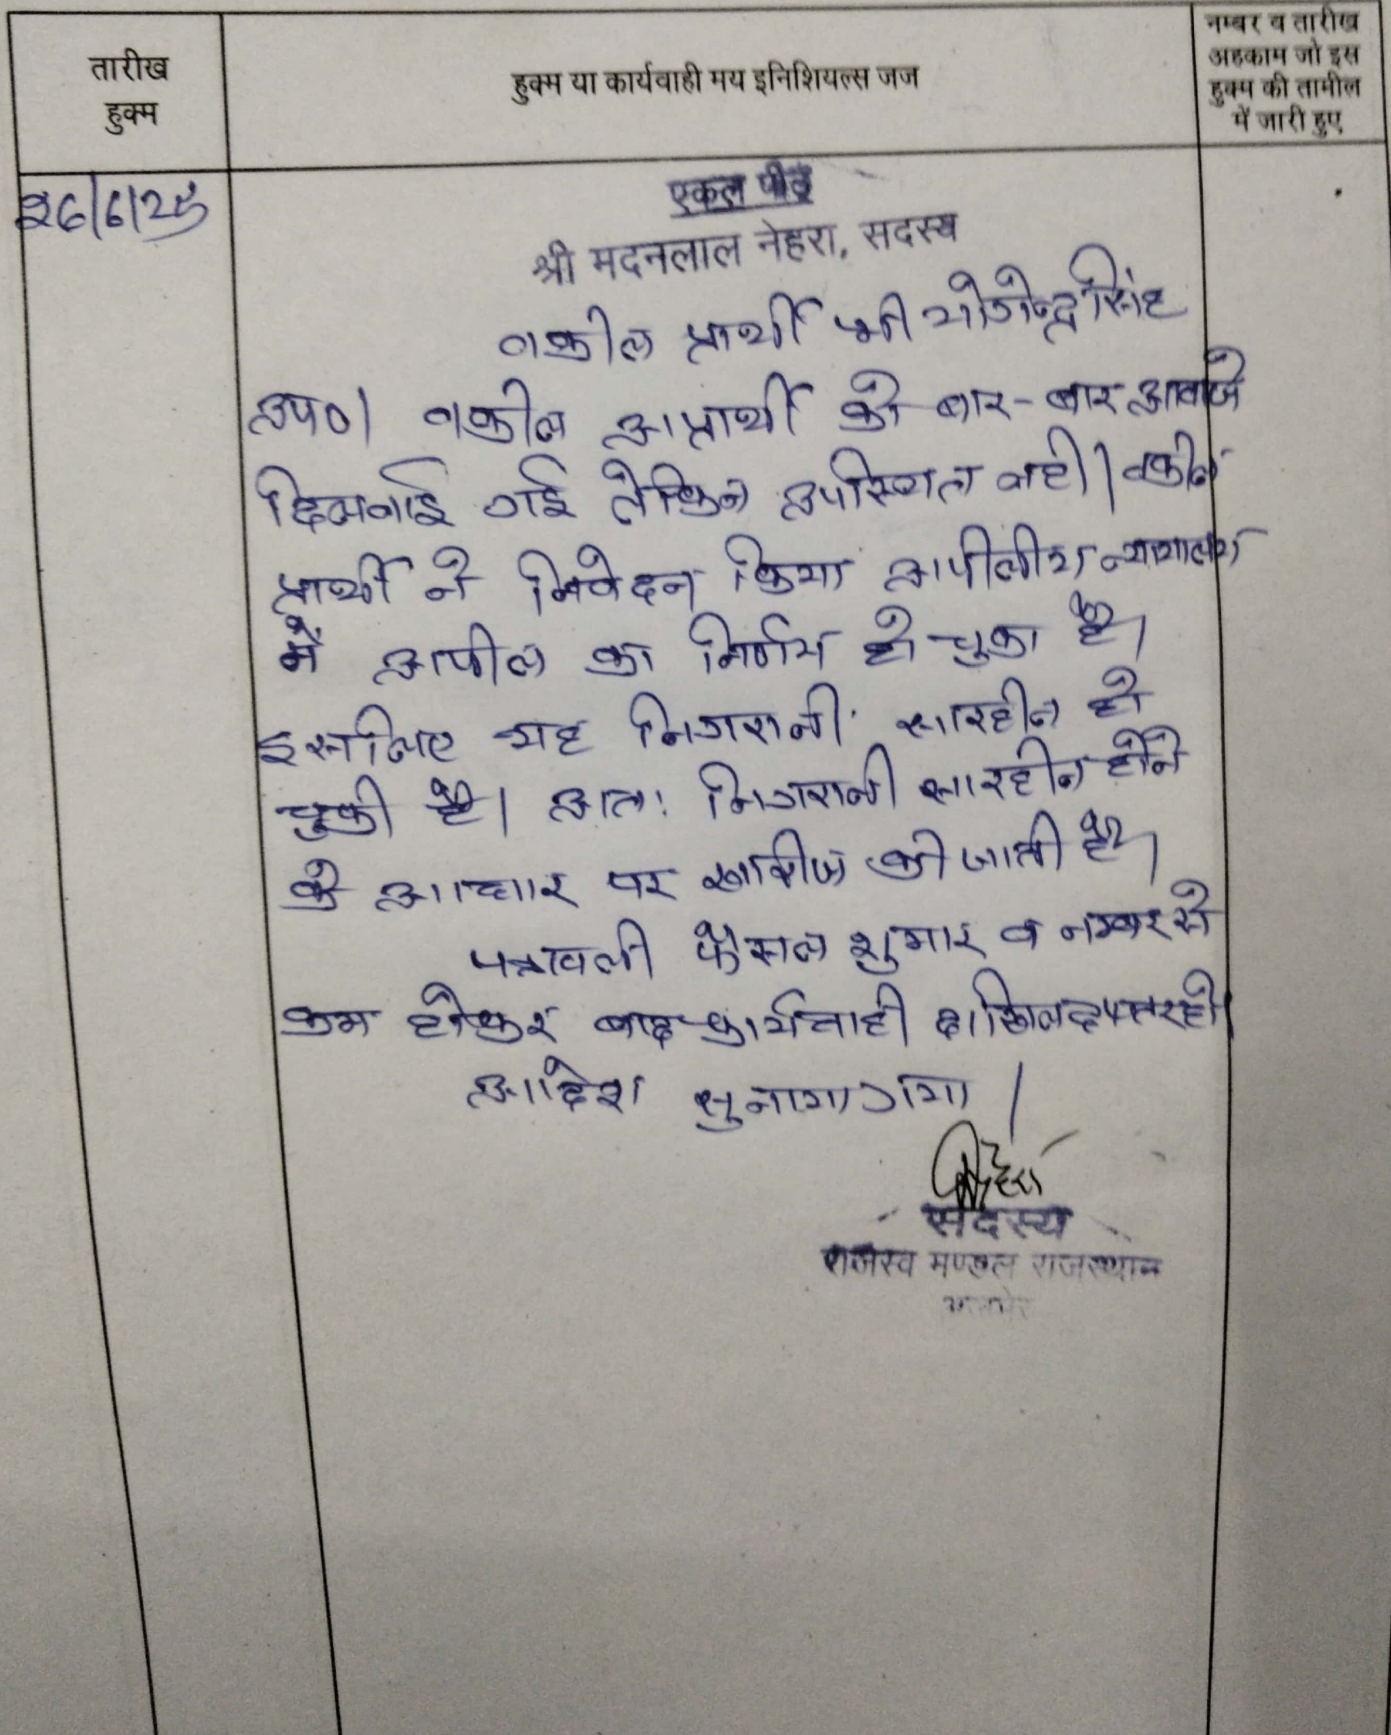 तारीख
हुक्म
हुक्म या कार्यवाही मय इनिशियल्स जज
नम्बर व तारीख
अहकाम जो इस
हुक्म की तामील
में जारी हुए
26/6/25
एकल पीठ
श्री मदनलाल नेहरा, सदस्य
वकील प्रार्थी श्री योगेन्द्र सिंह
उप०। वकील अप्रार्थी को बार-बार आवाजे
दिलवाई गई लेकिन उपस्थित नही। वकील
प्रार्थी ने निवेदन किया अपीलीय न्यायालय
में अपील का निर्णय हो चुका है।
इसलिए यह निगरानी सारहीन हो
चुकी है। अतः निगरानी सारहीन होने
के आधार पर खारीज की जाती है।
पत्रावली फैसल शुमार व नम्बर से
कम होकर बाद कार्यवाही दाखिल दफ्तर हो।
आदेश सुनाया गया।
सदस्य
राजस्व मण्डल राजस्थान
अजमेर